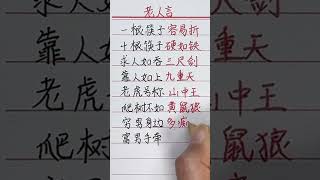 老人言
一根筷子容易折
十根筷子硬如铁
求人如吞三尺剑
靠人如上九重天
老虎号称山中王
爬树不如黄鼠狼
穷男身边多
富男手牵